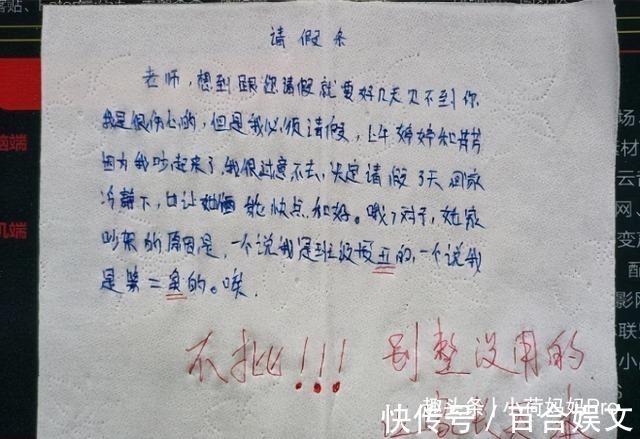 请假条
老师，想到跟您请假就要好几天见不到你
我是很伤心的，但是我必须请假，上午婷婷和芹芹
因为我吵起来了，我很过意不去，决定请假3天回家
冷静下，也让她俩能快点和好。哦，对了，她家
吵架的原因是，一个说我是班级最丑的，一个说我
是第二丑的。唉.
不批!!! 别整没用的
趣头条 小荷妈妈Pro
快传号/百合娱文
脑端
机端